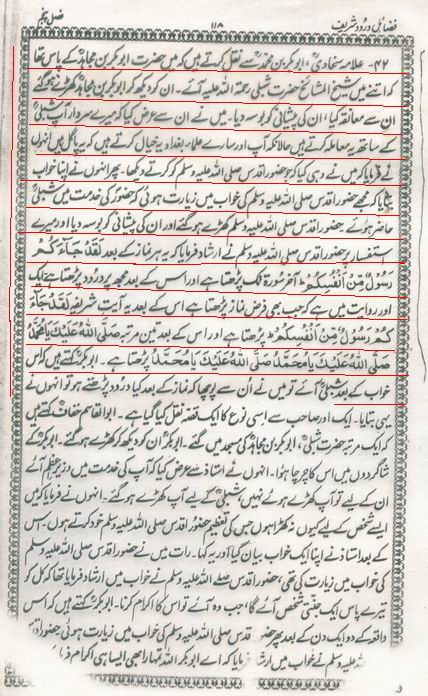 فضائل درود شریف ۱۱۸ فصل پنجم
۴۲- علامہ سخاوی، ابوبکر بن محمد سے نقل کرتے ہیں کہ میں حضرت ابوبکر بن مجاہد کے پاس تھا
کہ اتنے میں شیخ المشائخ حضرت شبلی رحمۃ اللہ علیہ آئے۔ ان کو دیکھ کر ابوبکر بن مجاہد کھڑے ہو گئے
ان سے معانقہ کیا، ان کی پیشانی کو بوسہ دیا۔ میں نے ان سے عرض کیا کہ میرے سردار آپ شبلی
کے ساتھ یہ معاملہ کرتے ہیں حالانکہ آپ اور سارے علماء بغداد یہ خیال کرتے ہیں کہ یہ پاگل ہیں انہوں
نے فرمایا کہ میں نے وہی کیا کہ جو حضور اقدس صلی اللہ علیہ وسلم کو کرتے دیکھا۔ پھر انہوں نے اپنا خواب
بتایا کہ مجھے حضور اقدس صلی اللہ علیہ وسلم کی خواب میں زیارت ہوئی کہ حضور کی خدمت میں شبلی
حاضر ہوئے حضور اقدس صلی اللہ علیہ وسلم کھڑے ہو گئے اور ان کی پیشانی کو بوسہ دیا اور میرے
استفسار پر حضور اقدس صلی اللہ علیہ وسلم نے ارشاد فرمایا کہ یہ ہر نماز کے بعد لَقَدْ جَآءَ كُمْ
رَسُوْلٌ مِّنْ اَنْفُسِكُمْ آخر سورۃ تک پڑھتا ہے اور اس کے بعد مجھ پر درود پڑھتا ہے ایک
اور روایت میں ہے کہ جب بھی فرض نماز پڑھتا ہے اس کے بعد یہ آیت شریفہ لَقَدْ جَآءَ
كُمْ رَسُوْلٌ مِّنْ اَنْفُسِكُمْ پڑھتا ہے اور اس کے بعد تین مرتبہ صَلَّى اللهُ عَلَيْكَ يَا مُحَمَّدُ
صَلَّى اللهُ عَلَيْكَ يَا مُحَمَّدُ صَلَّى اللهُ عَلَيْكَ يَا مُحَمَّدُ پڑھتا ہے۔ ابوبکر کہتے ہیں کہ اس
خواب کے بعد شبلی آئے تو میں نے اُن سے پوچھا کہ نماز کے بعد کیا درود پڑھتے ہو تو انہوں نے
یہی بتایا۔ ایک اور صاحب سے اسی نوع کا ایک قصہ نقل کیا گیا ہے۔ ابوالقاسم خفاف کہتے ہیں
کہ ایک مرتبہ حضرت شبلی، ابوبکر بن مجاہد کی مسجد میں گئے۔ ابوبکر ان کو دیکھ کر کھڑے ہو گئے۔ ابوبکر کے
شاگردوں میں اس کا چرچا ہوا۔ انہوں نے استاذ سے عرض کیا کہ آپ کی خدمت میں وزیر اعظم آئے
ان کے لیے تو آپ کھڑے ہوئے نہیں، شبلی کے لیے آپ کھڑے ہو گئے۔ انہوں نے فرمایا کہ میں
ایسے شخص کے لیے کیوں نہ کھڑا ہوں جس کی تعظیم حضور اقدس صلی اللہ علیہ وسلم خود کرتے ہوں۔ اس
کے بعد استاذ نے اپنا ایک خواب بیان کیا اور یہ کہا۔ رات میں نے حضور اقدس صلی اللہ علیہ وسلم
کی خواب میں زیارت کی تھی، حضور اقدس صلے اللہ علیہ وسلم نے خواب میں ارشاد فرمایا تھا کہ کل کو
تیرے پاس ایک جنتی شخص آئے گا، جب وہ آئے تو اس کا اکرام کرنا۔ ابوبکر کہتے ہیں کہ اس
واقعہ کے دو ایک دن کے بعد پھر حضور قدس صلی اللہ علیہ وسلم کی خواب میں زیارت ہوئی حضور
علیہ وسلم نے خواب میں ارشاد فرمایا کہ اے ابوبکر اللہ تمہارا بھی ایسا ہی اکرام